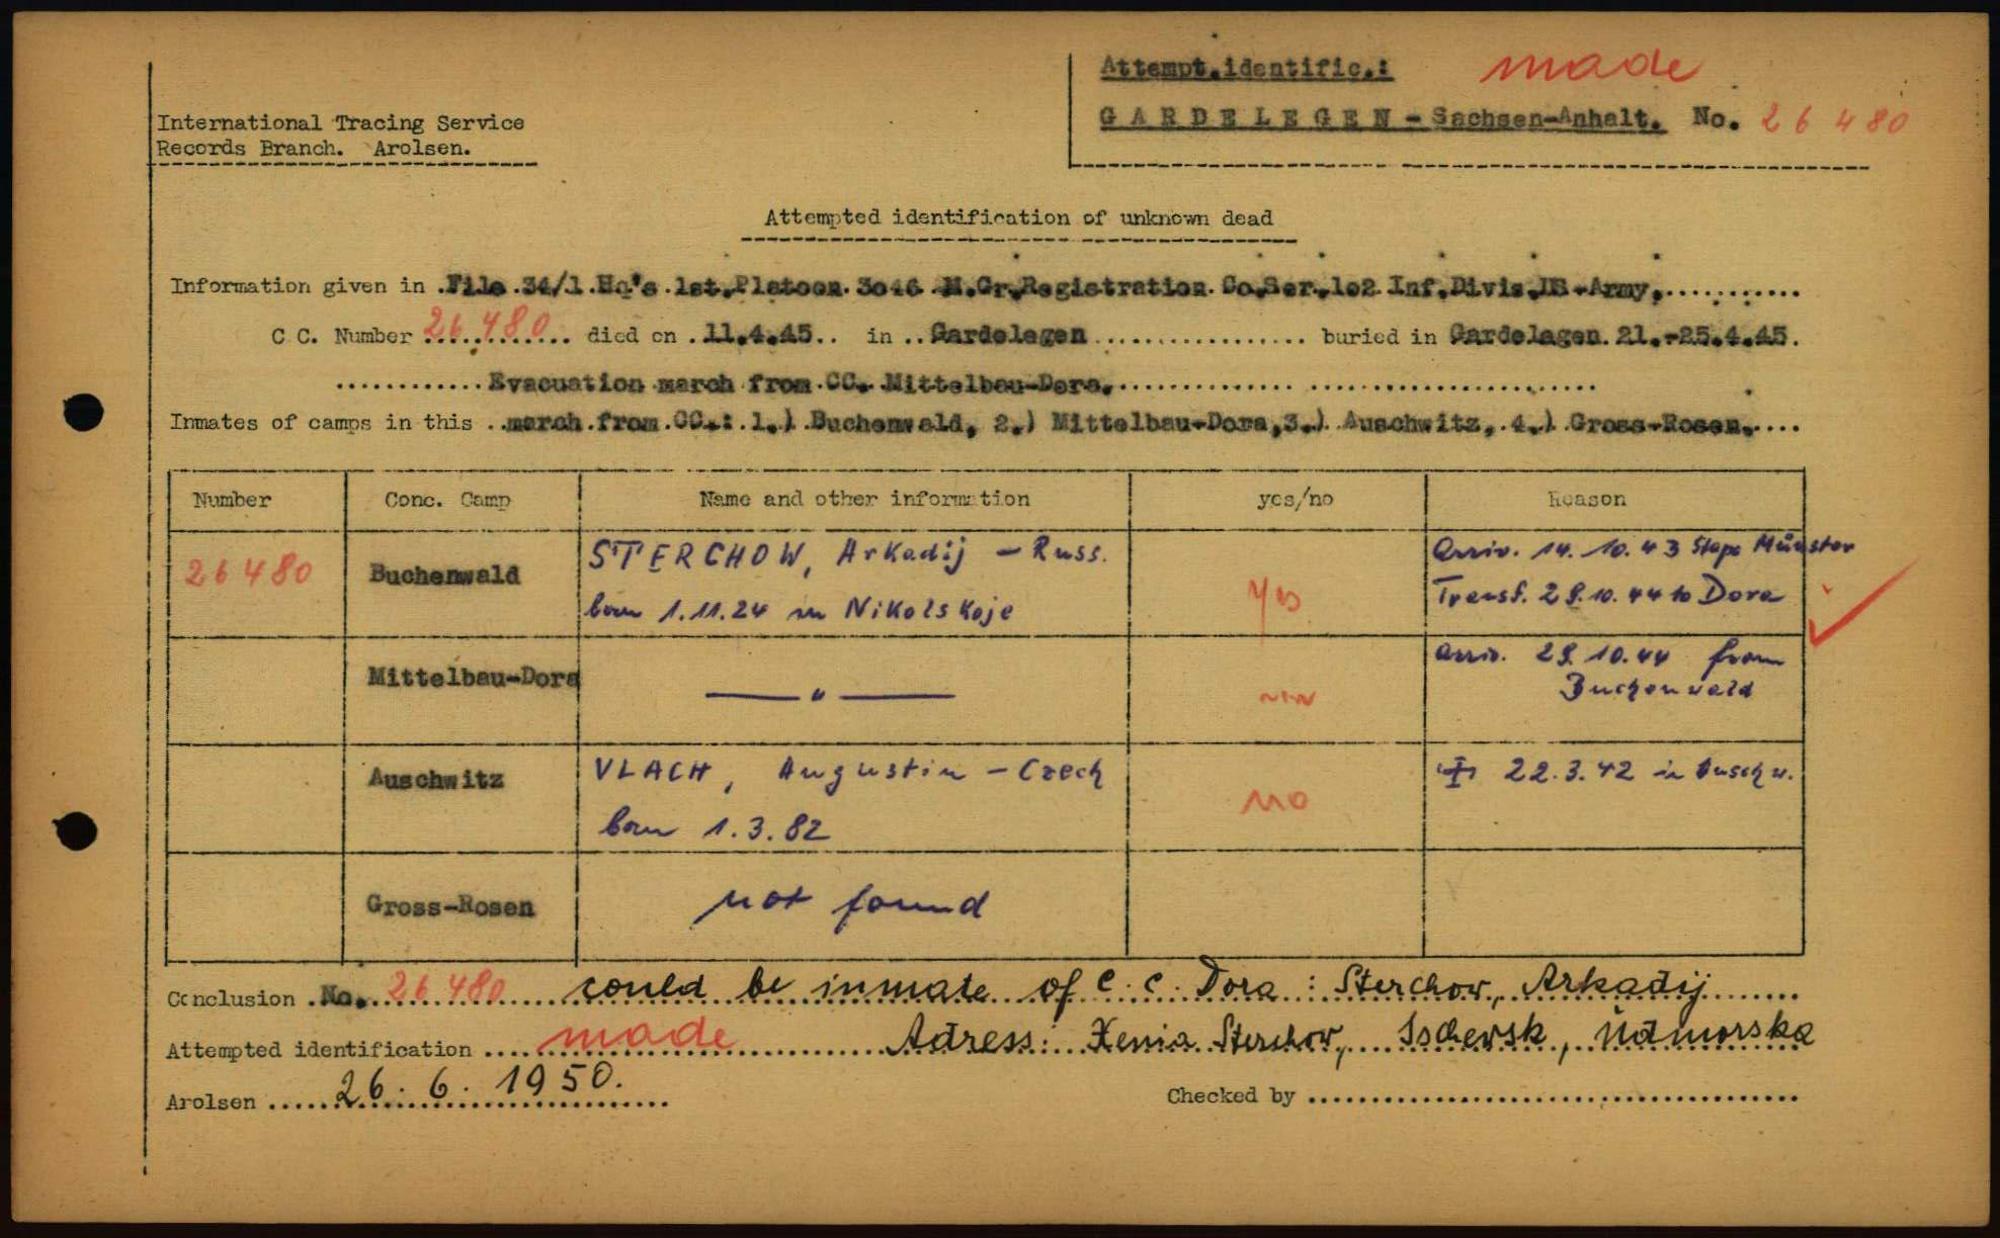 Attempt.identific.: made
GARDELEGEN - Sachsen-Anhalt. No. 26480
International Tracing Service
Records Branch. Arolsen.
Attempted identification of unknown dead
Information given in .File 34/1 Hq's 1st.Platoon 3046 Gr.Registration Co.Ser.102 Inf.Divis. Army.
C C. Number 26480 died on .11.4.45.. in ..Gardelegen buried in Gardelagen 21.-25.4.45.
Evacuation march from CC. Mittelbau-Dora.
Inmates of camps in this ..march from CC.: 1.) Buchenwald, 2.) Mittelbau-Dora,3.) Auschwitz, 4.) Gross-Rosen.
Number Conc. Camp Name and other information yes/no Reason
26480 Buchenwald STERCHOW, Arkadij - Russ. yes Arriv. 14. 10. 43 Stapo Münster
born 1.11.24 in Nikolskoje Transf. 28.10.44 to Dora
Mittelbau-Dora — " — arriv. 28.10.44 from
Buchenwald
Auschwitz VLACH, Augustin - Czech no 22.3.42 in Auschw.
born 1.3.82
Gross-Rosen not found
Conclusion .No. 26480 could be inmate of C.C. Dora : Sterchow, Arkadij
Attempted identification made Adress: Xenia Sterchov, Ischevsk, Udmorska
Arolsen 26. 6. 1950. Checked by